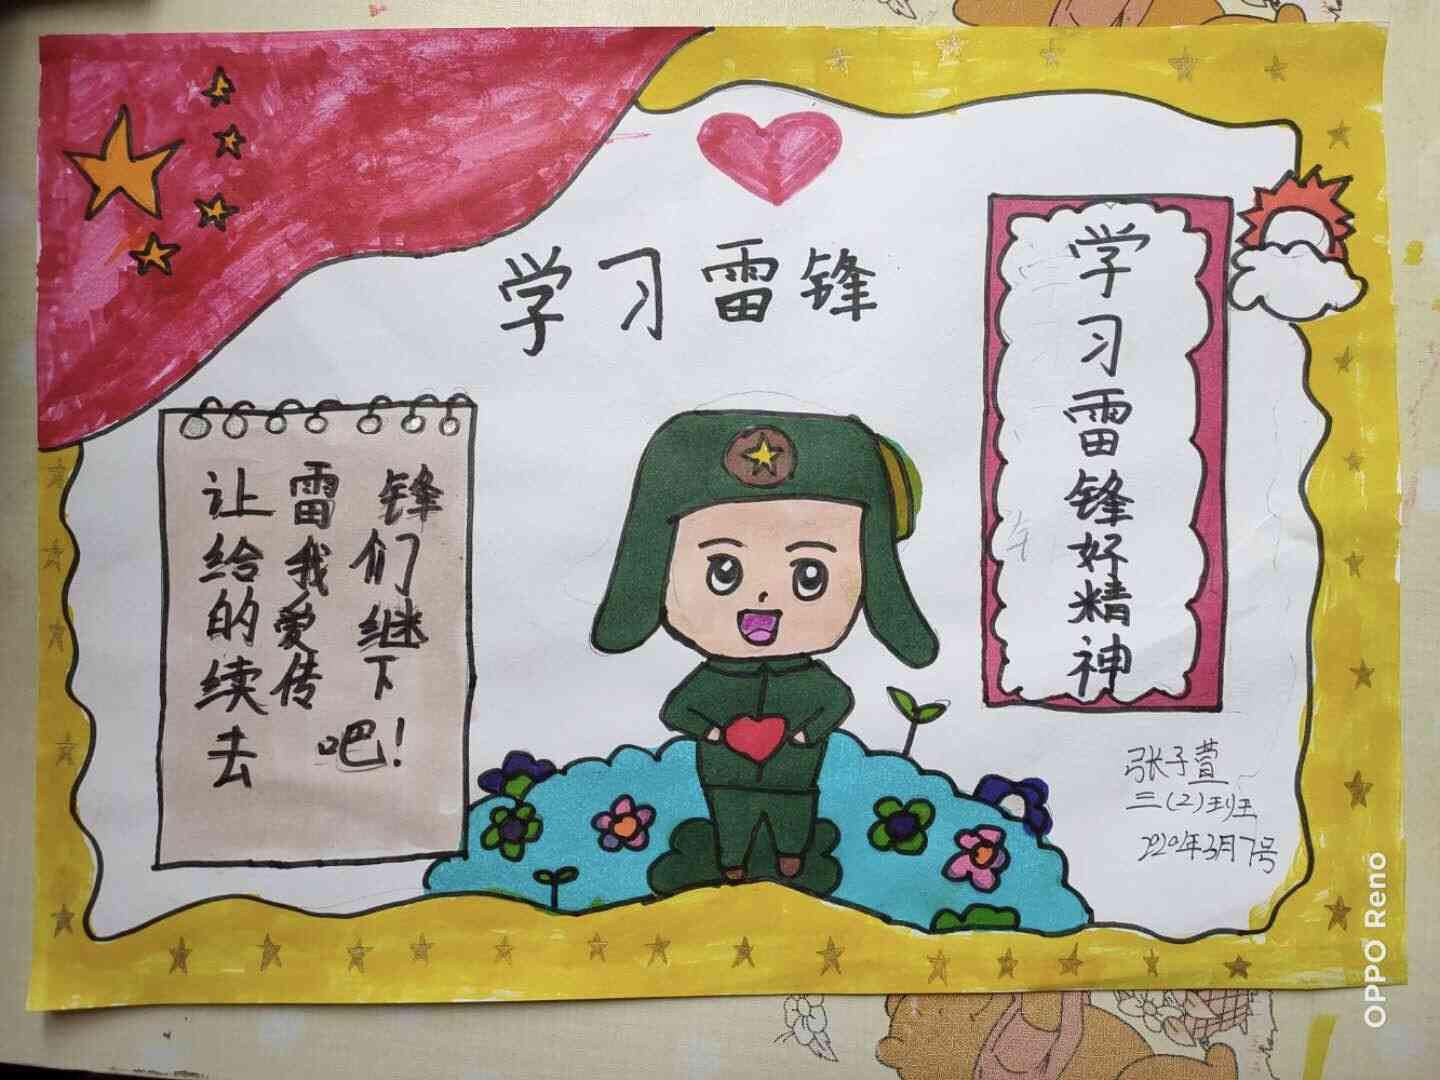 学习雷锋
让雷锋
给我们
的爱继
续传下
去吧!
学习雷锋好精神
张子萱
三(2)班
2020年3月7号
OPPO Reno